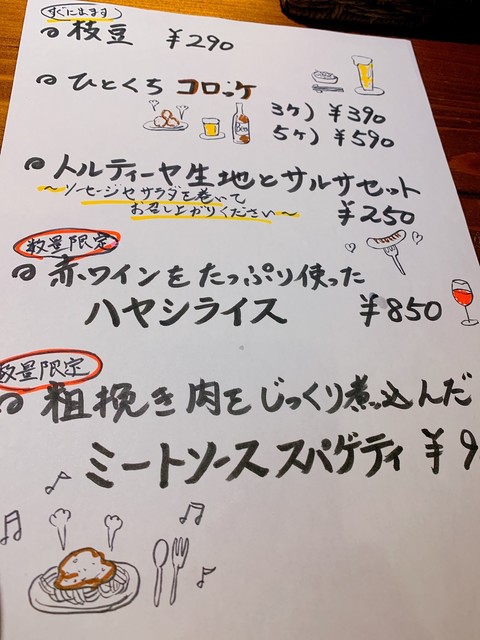 すぐにでます
枝豆 ¥290
ひとくち コロッケ
3ケ) ¥390
5ケ) ¥590
トルティーヤ生地とサルサセット
～ソーセージやサラダを巻いて
お召し上がりください～
¥250
数量限定
赤ワインをたっぷり使った
ハヤシライス ¥850
数量限定
粗挽き肉をじっくり煮込んだ
ミートソーススパゲティ ¥9